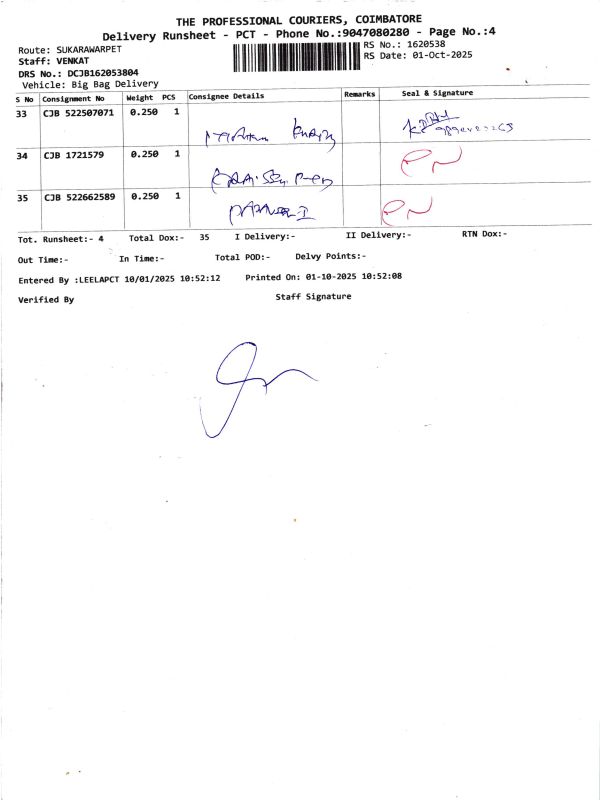 THE PROFESSIONAL COURIERS, COIMBATORE
Delivery Runsheet - PCT - Phone No.:9047080280 - Page No.:4
Route: SUKARAWARPET
RS No.: 1620538
Staff: VENKAT
RS Date: 01-Oct-2025
DRS No.: DCJB162053804
Vehicle: Big Bag Delivery
S No Consignment No Weight PCS Consignee Details Remarks Seal & Signature
33 CJB 522507071 0.250 1
34 CJB 1721579 0.250 1
35 CJB 522662589 0.250 1
Tot. Runsheet:- 4 Total Dox:- 35 I Delivery:- II Delivery:- RTN Dox:-
Out Time:- In Time:- Total POD:- Delvy Points:-
Entered By :LEELAPCT 10/01/2025 10:52:12 Printed On: 01-10-2025 10:52:08
Verified By Staff Signature